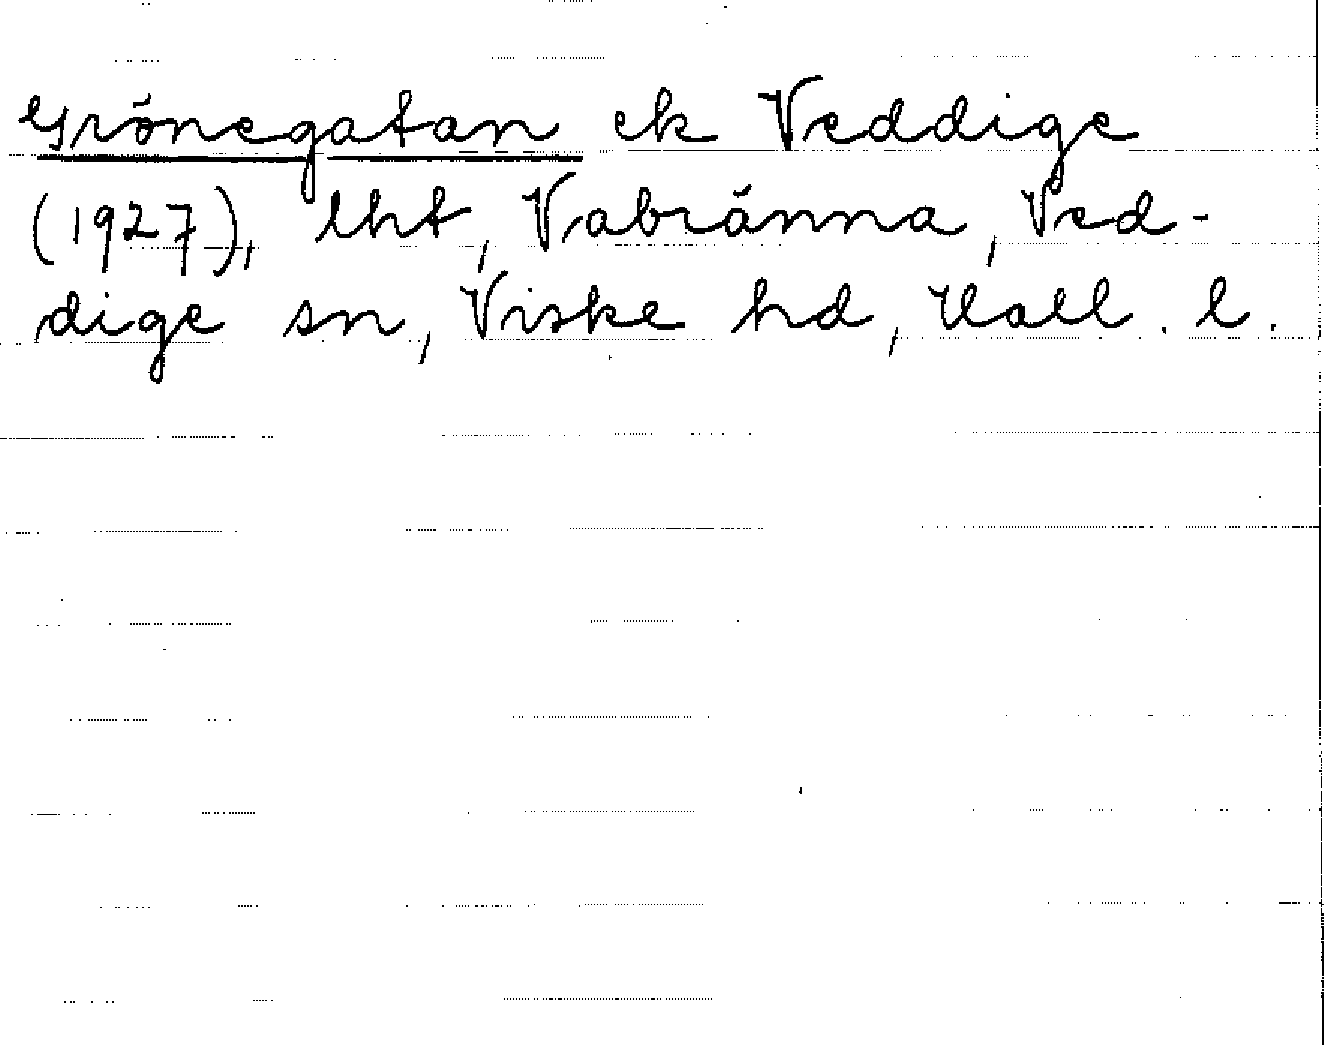 Grönegatan ek Veddige
(1927), lht, Vabränna, Ved-
dige sn, Viske hd, Hall. l.